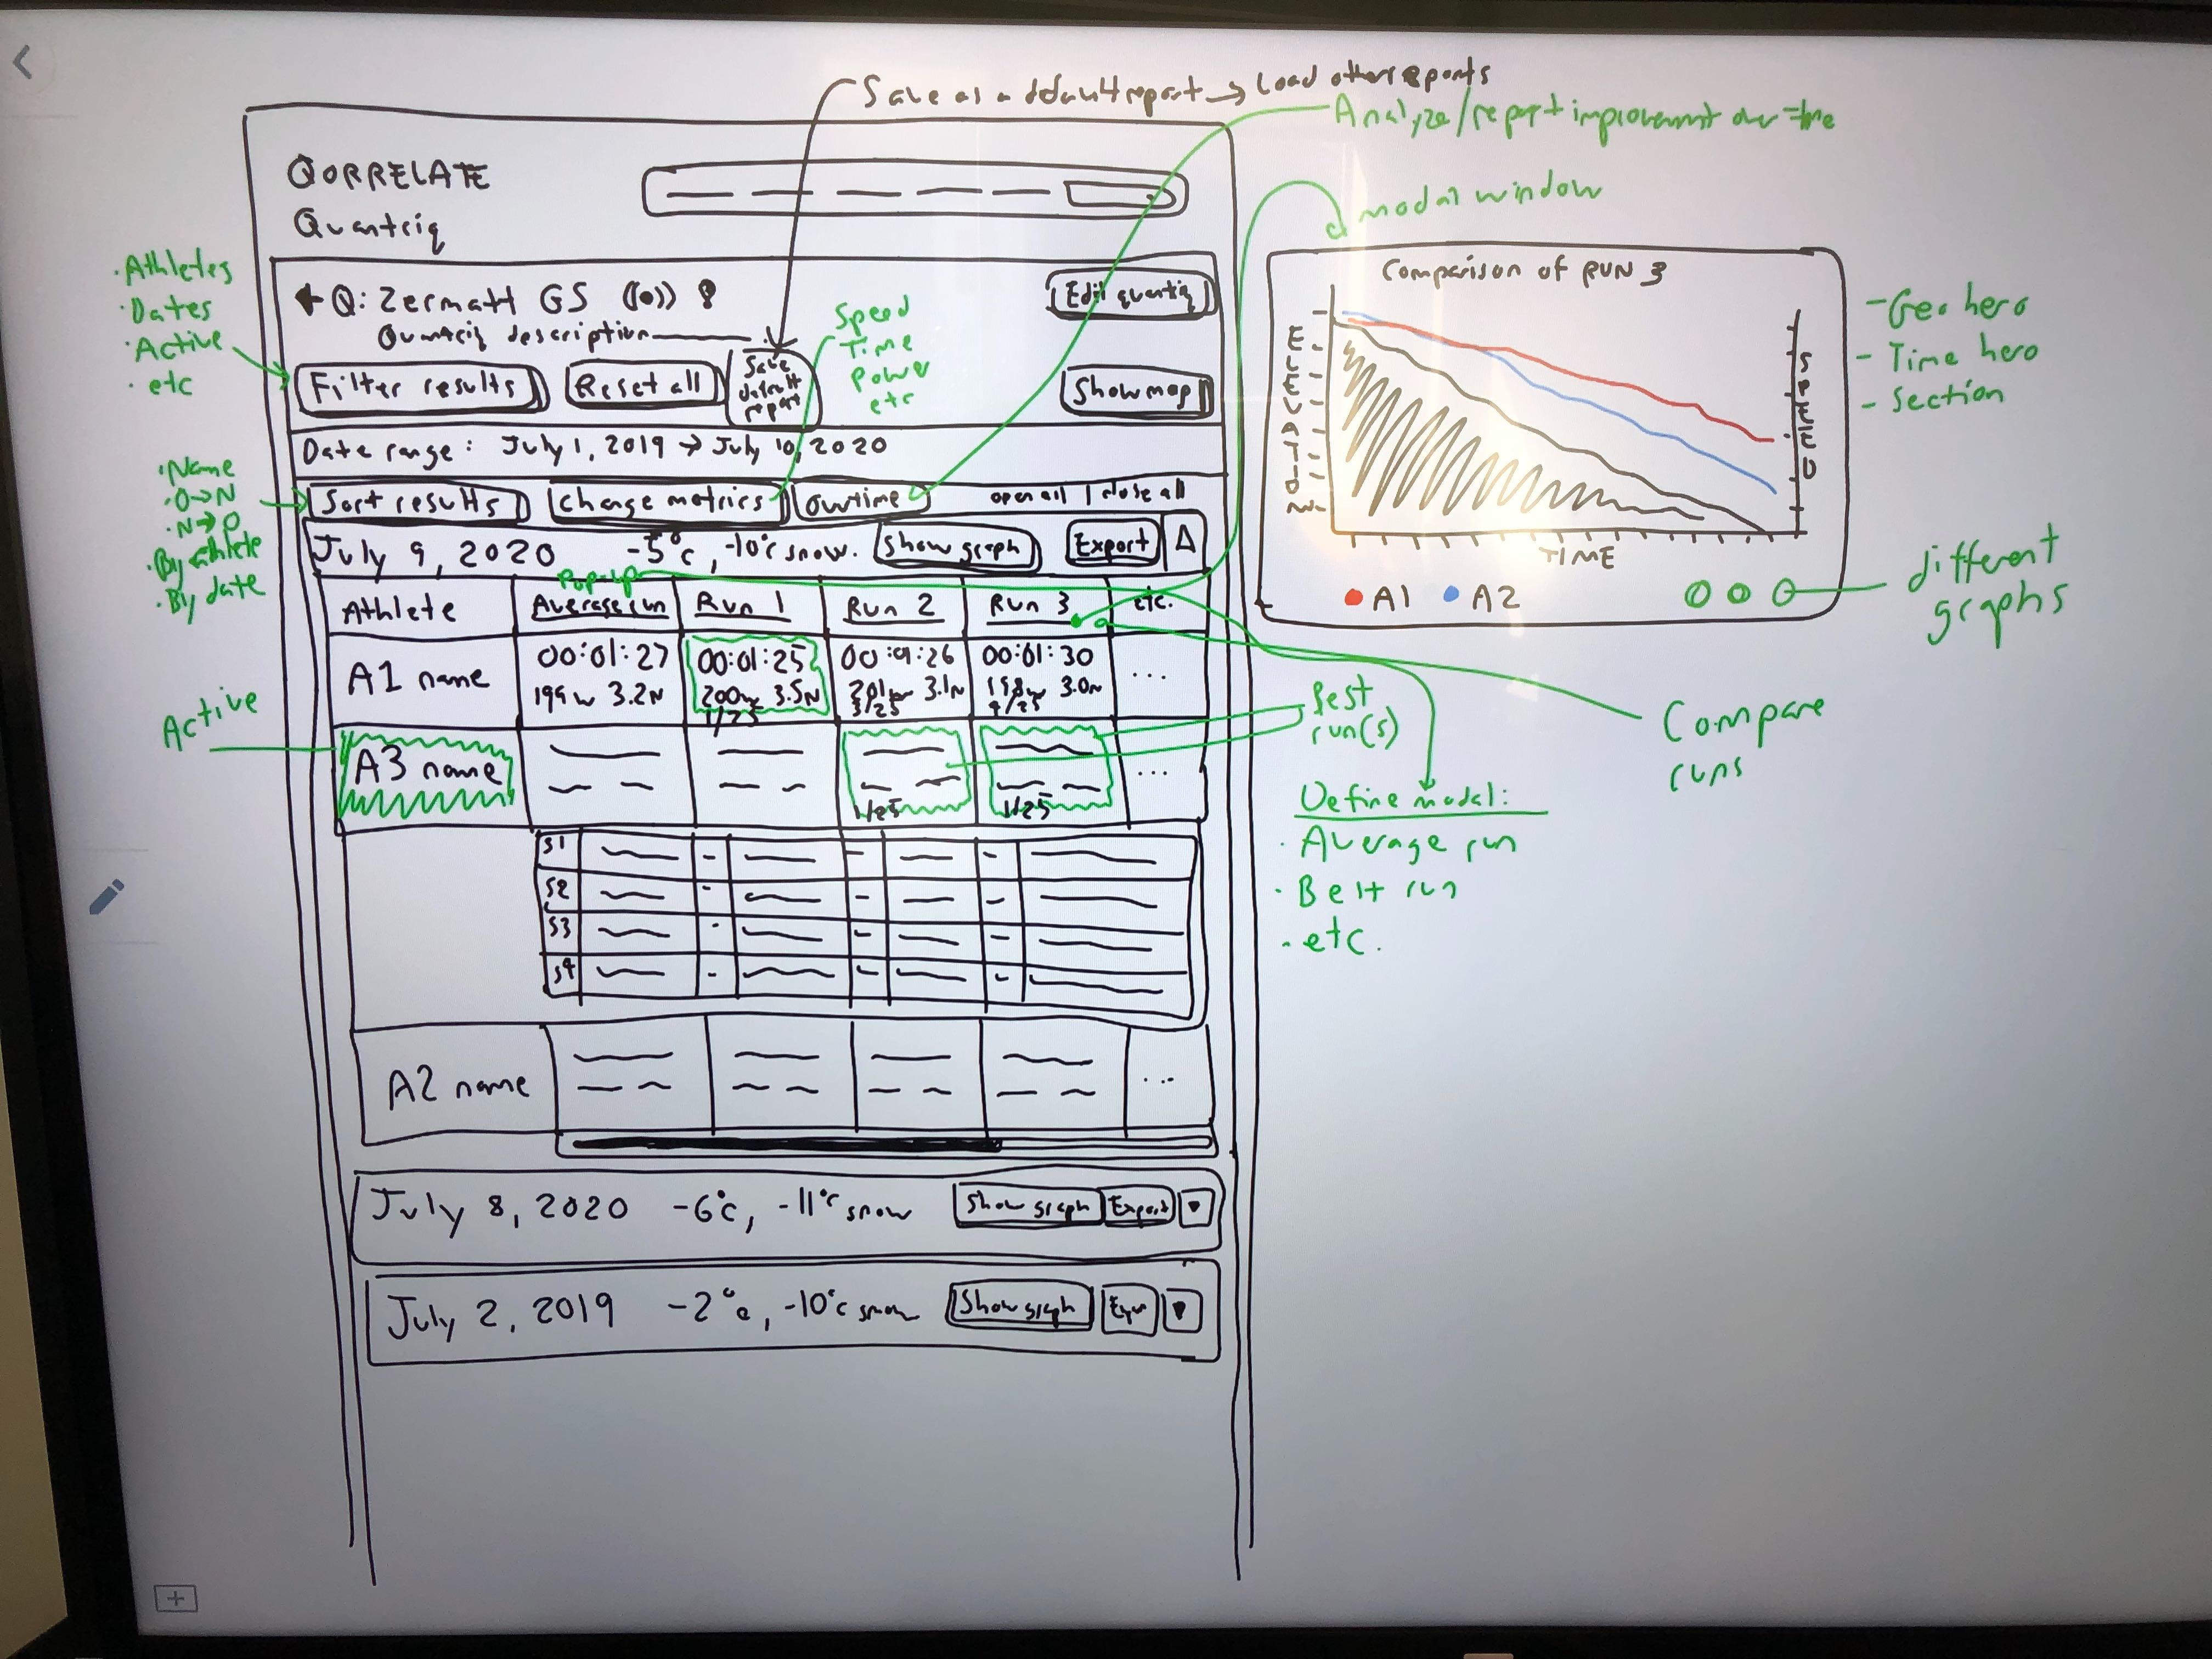 Save as a default report → Load other reports
Analyze/report improvement over time
modal window
QORRELATE
Quantriq
Q: Zermatt GS ((o))
Edit quantriq
Quantriq description
· Athletes
· Dates
· Active
· etc
Filter results
Reset all
Save default report
Show map
Speed
Time
Power
etc
Date range: July 1, 2019 → July 10, 2020
· Name
· O→N
· N→O
· By athlete
· By date
Sort results
Change metrics
Overtime
open all | close all
July 9, 2020 -5°c, -10°c snow.
Show graph
Export
Pop-up
Athlete
Average run
Run 1
Run 2
Run 3
etc.
A1 name
00:01:27
199w 3.2N
00:01:25
200w 3.5N
1/25
00:01:26
201w 3.1N
3/25
00:01:30
198w 3.0N
4/25
...
Active
A3 name
1/25
1/25
...
Best
run(s)
Compare
runs
S1
S2
S3
S4
A2 name
...
July 8, 2020 -6°c, -11°c snow
Show graph
Export
July 2, 2019 -2°c, -10°c snow
Show graph
Comparison of RUN 3
ELEVATION
SPEED
TIME
A1
A2
- Geo hero
- Time hero
- Section
different
graphs
Define modal:
· Average run
· Best run
· etc.